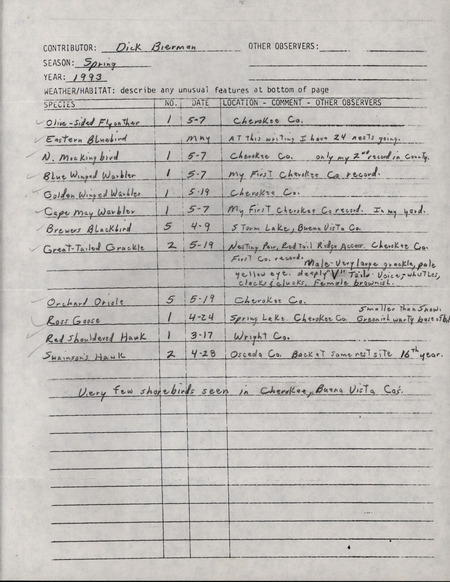 CONTRIBUTOR: Dick Bierman OTHER OBSERVERS:
SEASON: Spring
YEAR: 1993
WEATHER/HABITAT: describe any unusual features at bottom of page
SPECIES NO. DATE LOCATION - COMMENT - OTHER OBSERVERS
Olive-Sided Flycather 1 5-7 Cherokee Co.
Eastern Bluebird May At this writing I have 24 nests going.
N. Mockingbird 1 5-7 Cherokee Co. only my 2nd record in County.
Blue Winged Warbler 1 5-7 My First Cherokee Co. record.
Golden Winged Warbler 1 5-19 Cherokee Co.
Cape May Warbler 1 5-7 My First Cherokee Co record. In my yard.
Brewers Blackbird 5 4-9 Storm Lake, Buena Vista Co.
Great-Tailed Grackle 2 5-19 Nesting Pair, Red Tail Ridge Access Cherokee Co.
First Co. record. Male-Very large grackle, pale
yellow eye. deeply "V" Tail. Voice, whistles,
clacks & clucks. Female brownish.
Orchard Oriole 5 5-19 Cherokee Co.
Smaller than Snow.
Ross Goose 1 4-24 Spring Lake. Cherokee Co. Greenish warty base of bill
Red Shouldered Hawk 1 3-17 Wright Co.
Swainson's Hawk 2 4-28 Osceola Co. Back at same nest site 16th year.
Very few shorebirds seen in Cherokee, Buena Vista Co's.